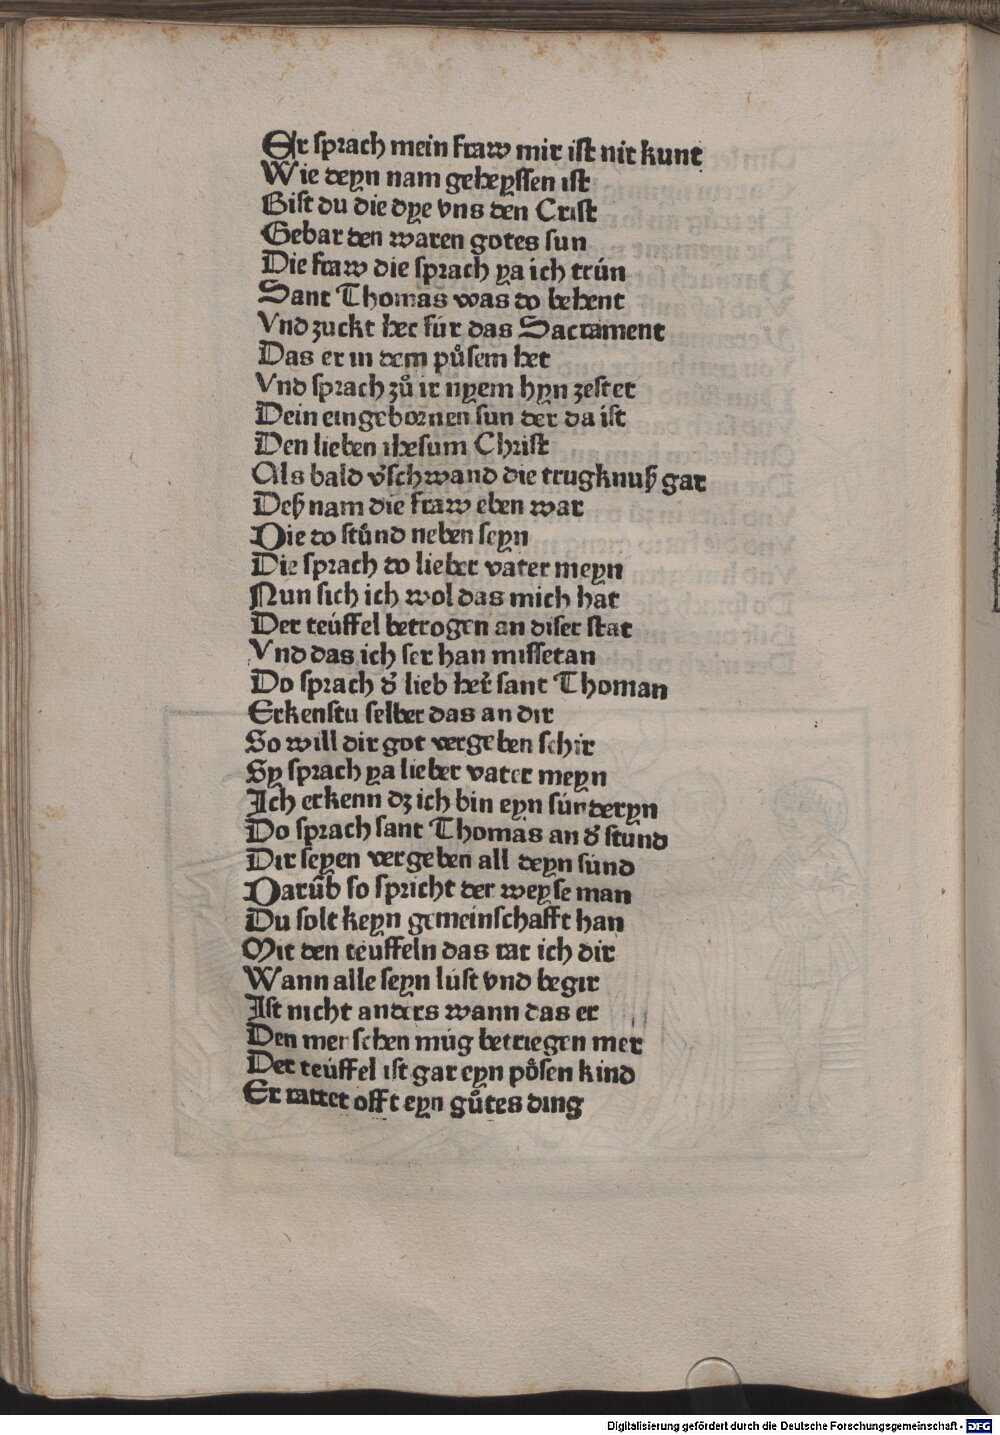 Er sprach mein fraw mir ist nit kunt
Wie deyn nam geheyssen ist
Bist du die dye vns den Crist
Gebar den waren gotes sun
Die fraw die sprach ya ich trún
Sant Thomas was do behent
Vnd zuckt her fúr das Sacrament
Das er in dem půsem het
Vnd sprach zů ir nyem hyn zestet
Dein eingebornen sun der da ist
Den lieben ihesum Christ
Als bald v̓schwand die trugknuß gar
Deß nam die fraw eben war
Die do stůnd neben seyn
Die sprach do lieber vater meyn
Nun sich ich wol das mich hat
Der teúffel betrogen an diser stat
Vnd das ich ser han missetan
Do sprach d̓ lieb her̓ sant Thoman
Erkenstu selber das an dir
So will dir got vergeben schir
Sy sprach ya lieber vater meyn
Ich erkenn dz ich bin eyn súnderyn
Do sprach sant Thomas an d̓ stund
Dir seyen vergeben all deyn súnd
Darūb so spricht der weyse man
Du solt keyn gemeinschafft han
Mit den teúffeln das rat ich dir
Wann alle seyn lúst vnd begir
Ist nicht anders wann das er
Den menschen múg betriegen mer
Der teúffel ist gar eyn pösen kind
Er rattet offt eyn gůtes ding
Digitalisierung gefördert durch die Deutsche Forschungsgemeinschaft - DFG